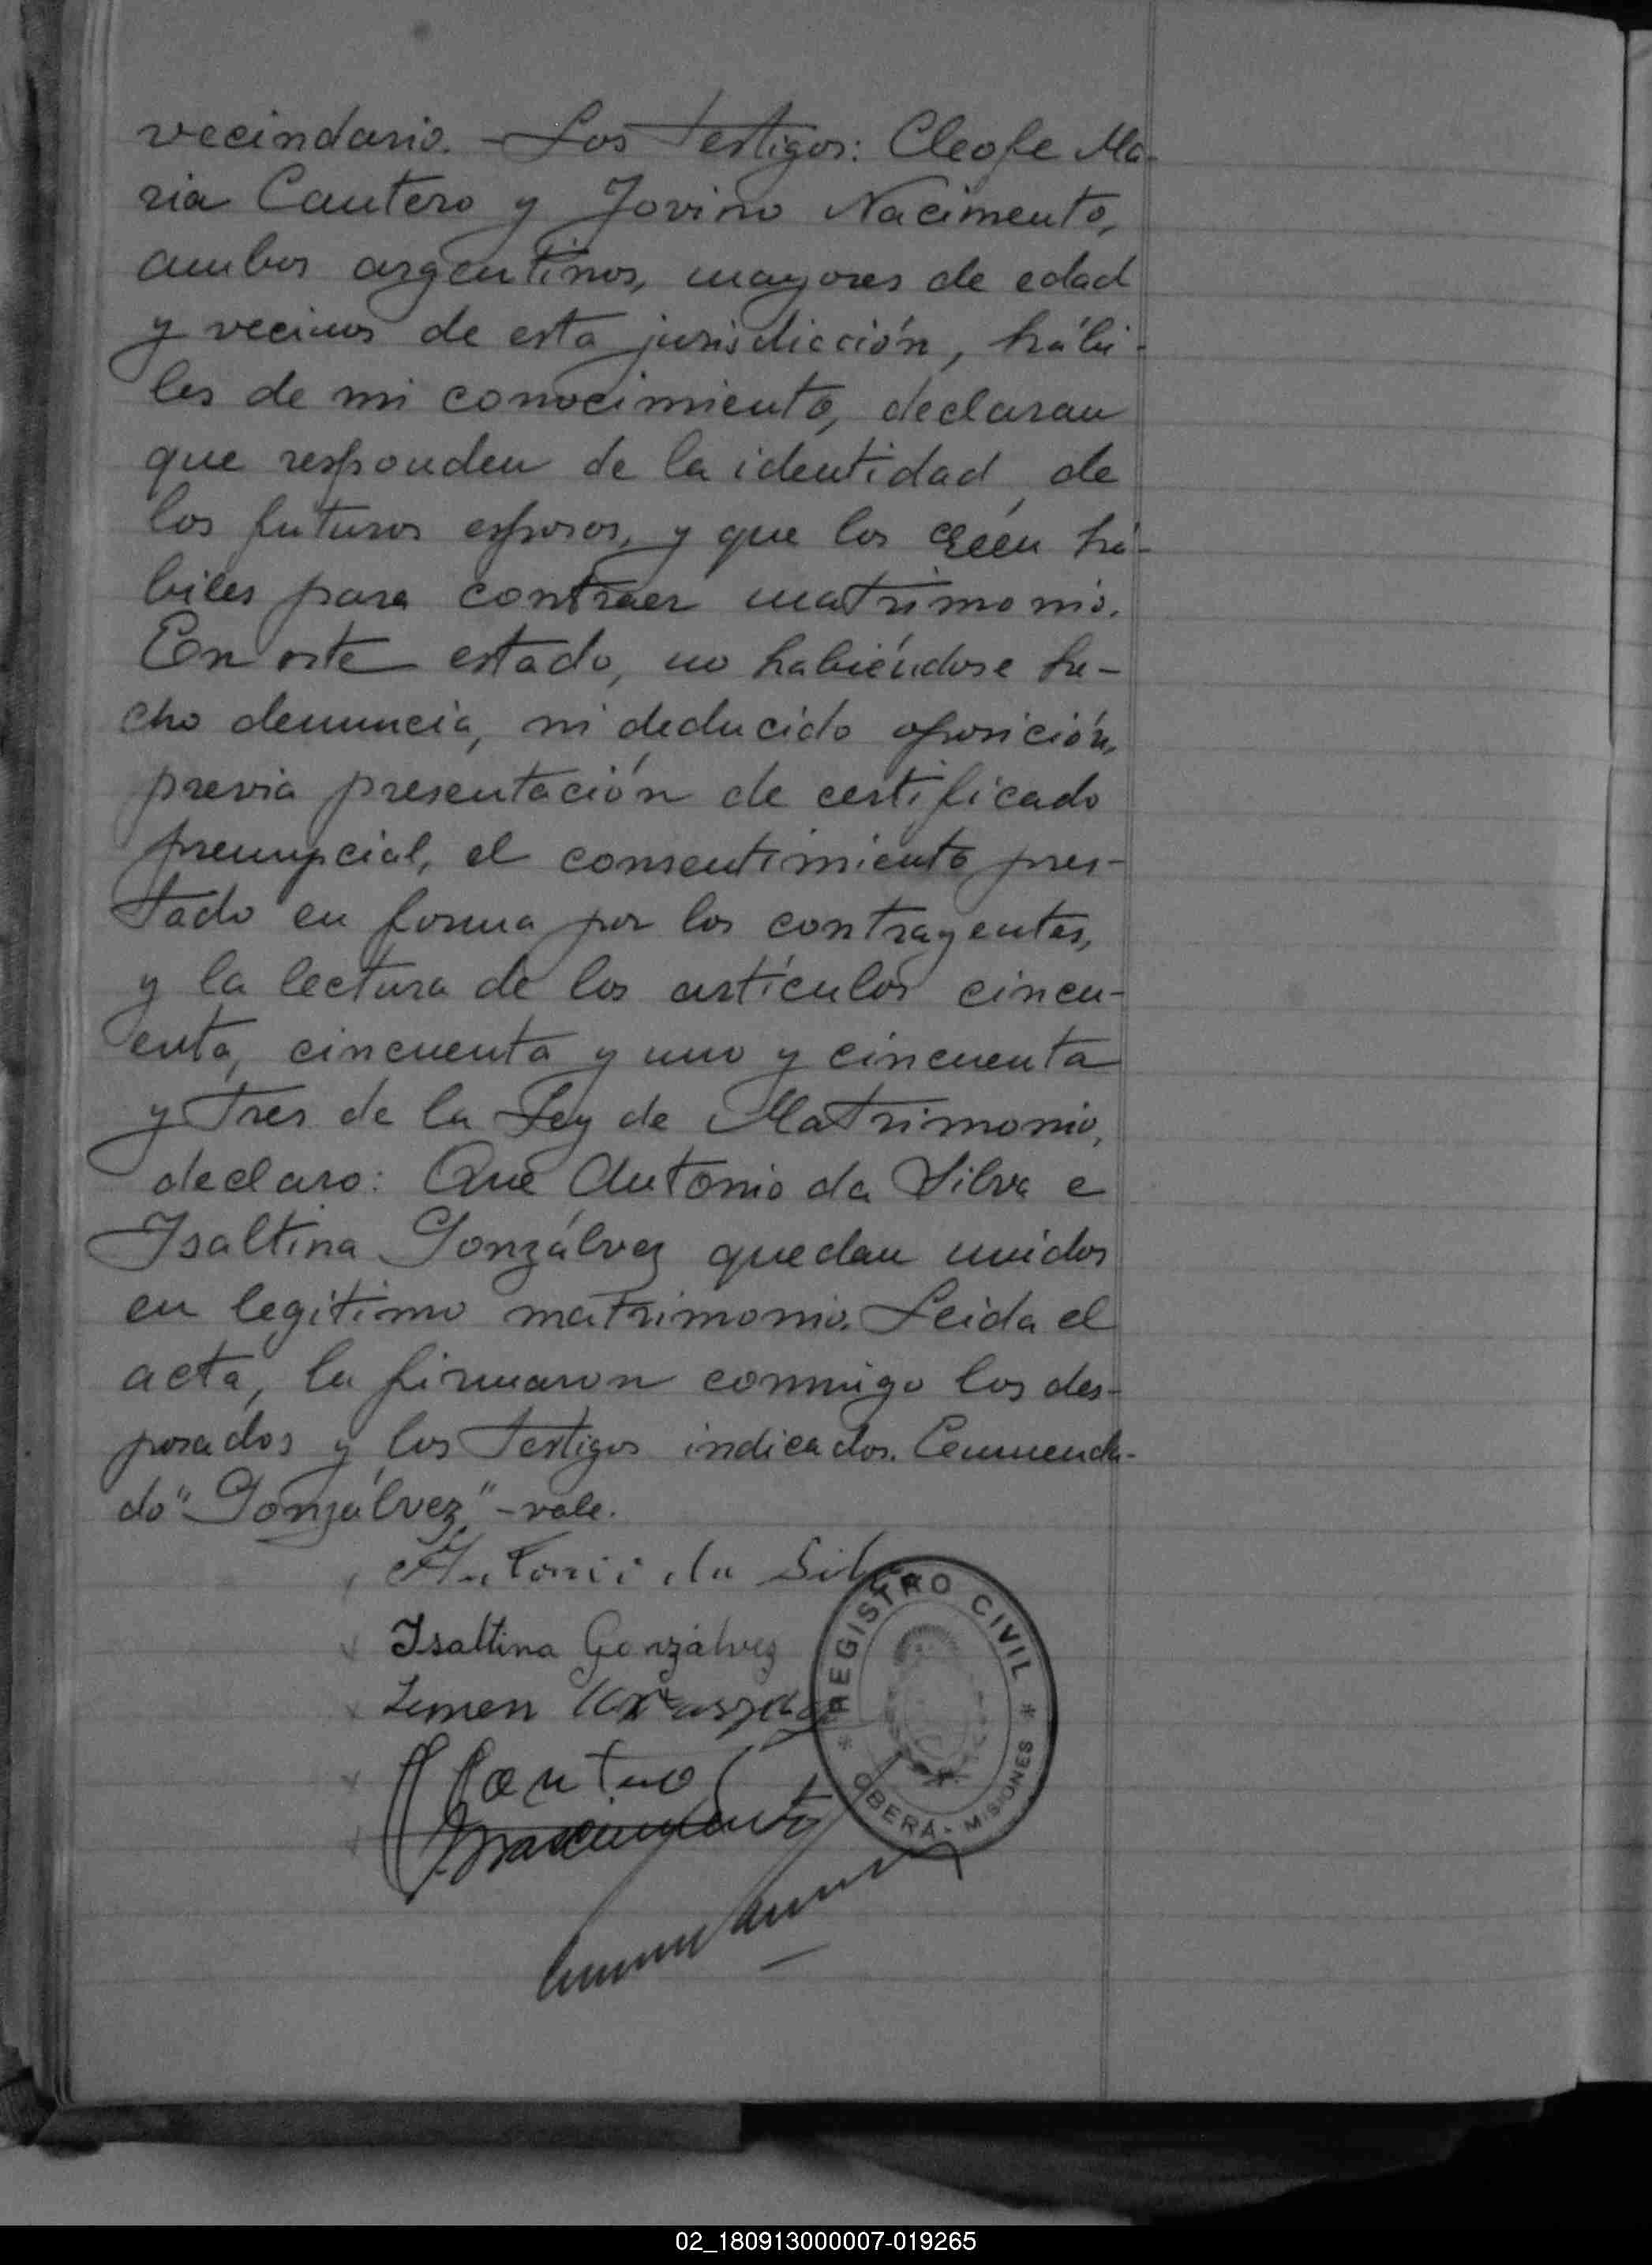 vecindario. - Los testigos: Cleofe Ma-
ria Cautero y Jovino Nacimento,
ambos argentinos, mayores de edad
y vecinos de esta jurisdicción, hábi-
les de mi conocimiento, declaran
que responden de la identidad de
los futuros esposos, y que los créen há-
biles para contraer matrimonio.
En este estado, no habiéndose he-
cho denuncia, ni deducido oposición,
previa presentación de certificado
prenupcial, el consentimiento pres-
tado en forma por los contrayentes,
y la lectura de los artículos cincu-
enta, cincuenta y uno y cincuenta
y tres de la Ley de Matrimonio,
declaro: Que Antonio da Silva e
Isaltina Gonzálvez quedan unidos
en legítimo matrimonio. Leida el
acta, la firmaron conmigo los des-
posados y los testigos indicados. Enmenda-
do "Gonzálvez" - vale.
Antonio da Silva
Isaltina Gonzálvez
REGISTRO CIVIL
OBERÁ - MISIONES
02_180913000007-019265